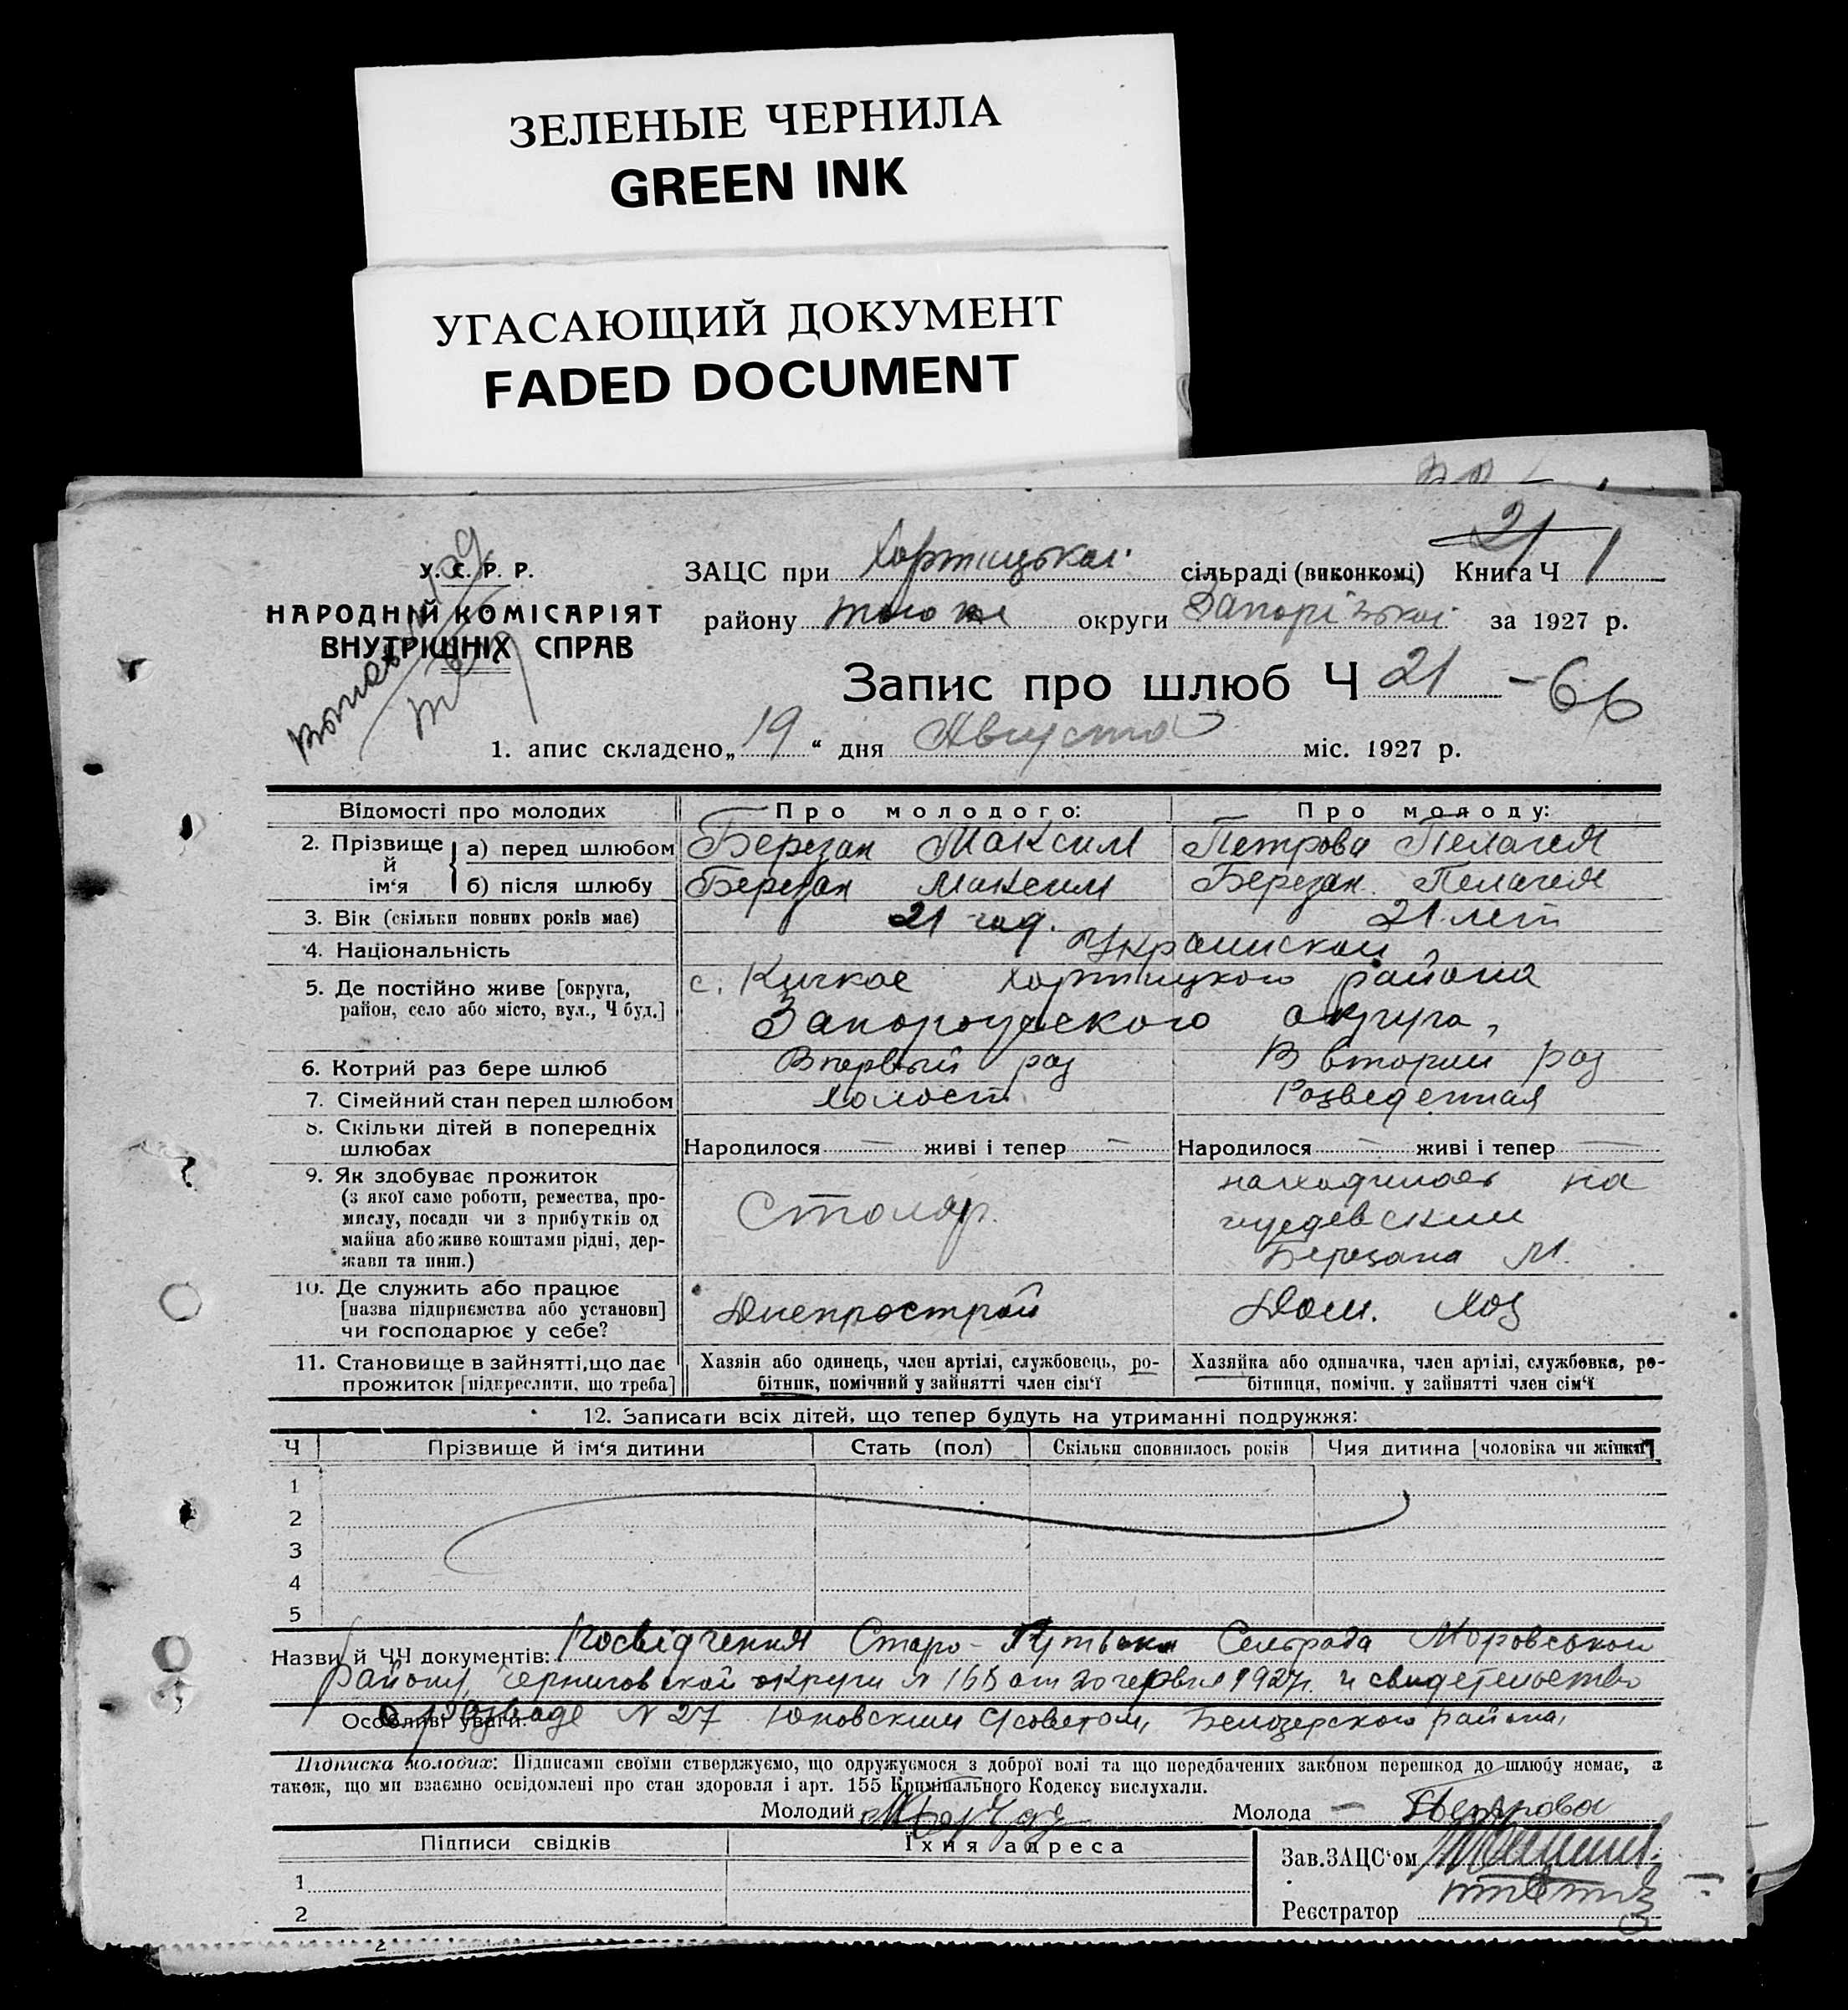 ЗЕЛЕНЫЕ ЧЕРНИЛА
GREEN INK
УГАСАЮЩИЙ ДОКУМЕНТ
FADED DOCUMENT
21
У. С. Р. Р.
НАРОДНІЙ КОМІСАРІЯТ
ВНУТРІШНІХ СПРАВ
ЗАЦС при Хортицької сільраді (виконкомі) Книга Ч 1
району того же округи Запорізької за 1927 р.
Запис про шлюб Ч 21 - 66
1. апис складено „ 19 “ дня Августа міс. 1927 р.
Відомості про молодих Про молодого: Про молоду:
2. Прізвище й ім‘я а) перед шлюбом Березан Максим Петрова Пелагея
б) після шлюбу Березан Максим Березан Пелагея
3. Вік (скільки повних років має) 21 год. 21 лет
4. Національність Украинской
5. Де постійно живе [округа, с. Кичкас Хортицкого района
район, село або місто, вул., Ч буд.] Запорожского округа,
6. Котрий раз бере шлюб Впервый раз В вторий раз
7. Сімейний стан перед шлюбом Холост Розведенная
8. Скільки дітей в попередніх
шлюбах Народилося — живі і тепер — Народилося — живі і тепер —
9. Як здобуває прожиток
(з якої саме роботи, ремества, про-
мислу, посади чи з прибутків од
майна або живе коштами рідні, дер-
жави та инш.)
Столяр.
находилась на
Березана М.
10. Де служить або працює
[назва підприємства або установи]
чи господарює у себе?
Днепрострой Дом. Хоз
11. Становище в зайнятті, що дає
прожиток [підкреслити, що треба]
Хазяїн або одинець, член артілі, службовець, ро-
бітник, помічний у зайнятті член сім‘ї
Хазяйка або одиначка, член артілі, службовка, ро-
бітниця, помічн. у зайнятті член сім‘ї
12. Записати всіх дітей, що тепер будуть на утриманні подружжя:
Ч Прізвище й ім‘я дитини Стать (пол) Скільки сповнилось років Чия дитина [чоловіка чи жінки]
1
2
3
4
5
Назви й ЧЧ документів: Посвідчення Старо- Сельрада Моровської
району, Черниговской округи 20 червня 1927г. и свидетельство
Особливі уваги: о разводе N 27 Юновским с/советом, Белозерского района,
Підписка молодих: Підписами своїми стверджуємо, що одружуємося з доброї волі та що передбачених законом перешкод до шлюбу немає, а
також, що ми взаємно освідомлені про стан здоровля і арт. 155 Кримінального Кодексу вислухали.
Молодий Молода — Петрова
Підписи свідків Їхня адреса
Зав.ЗАЦС‘ом
1
2
Реєстратор
2